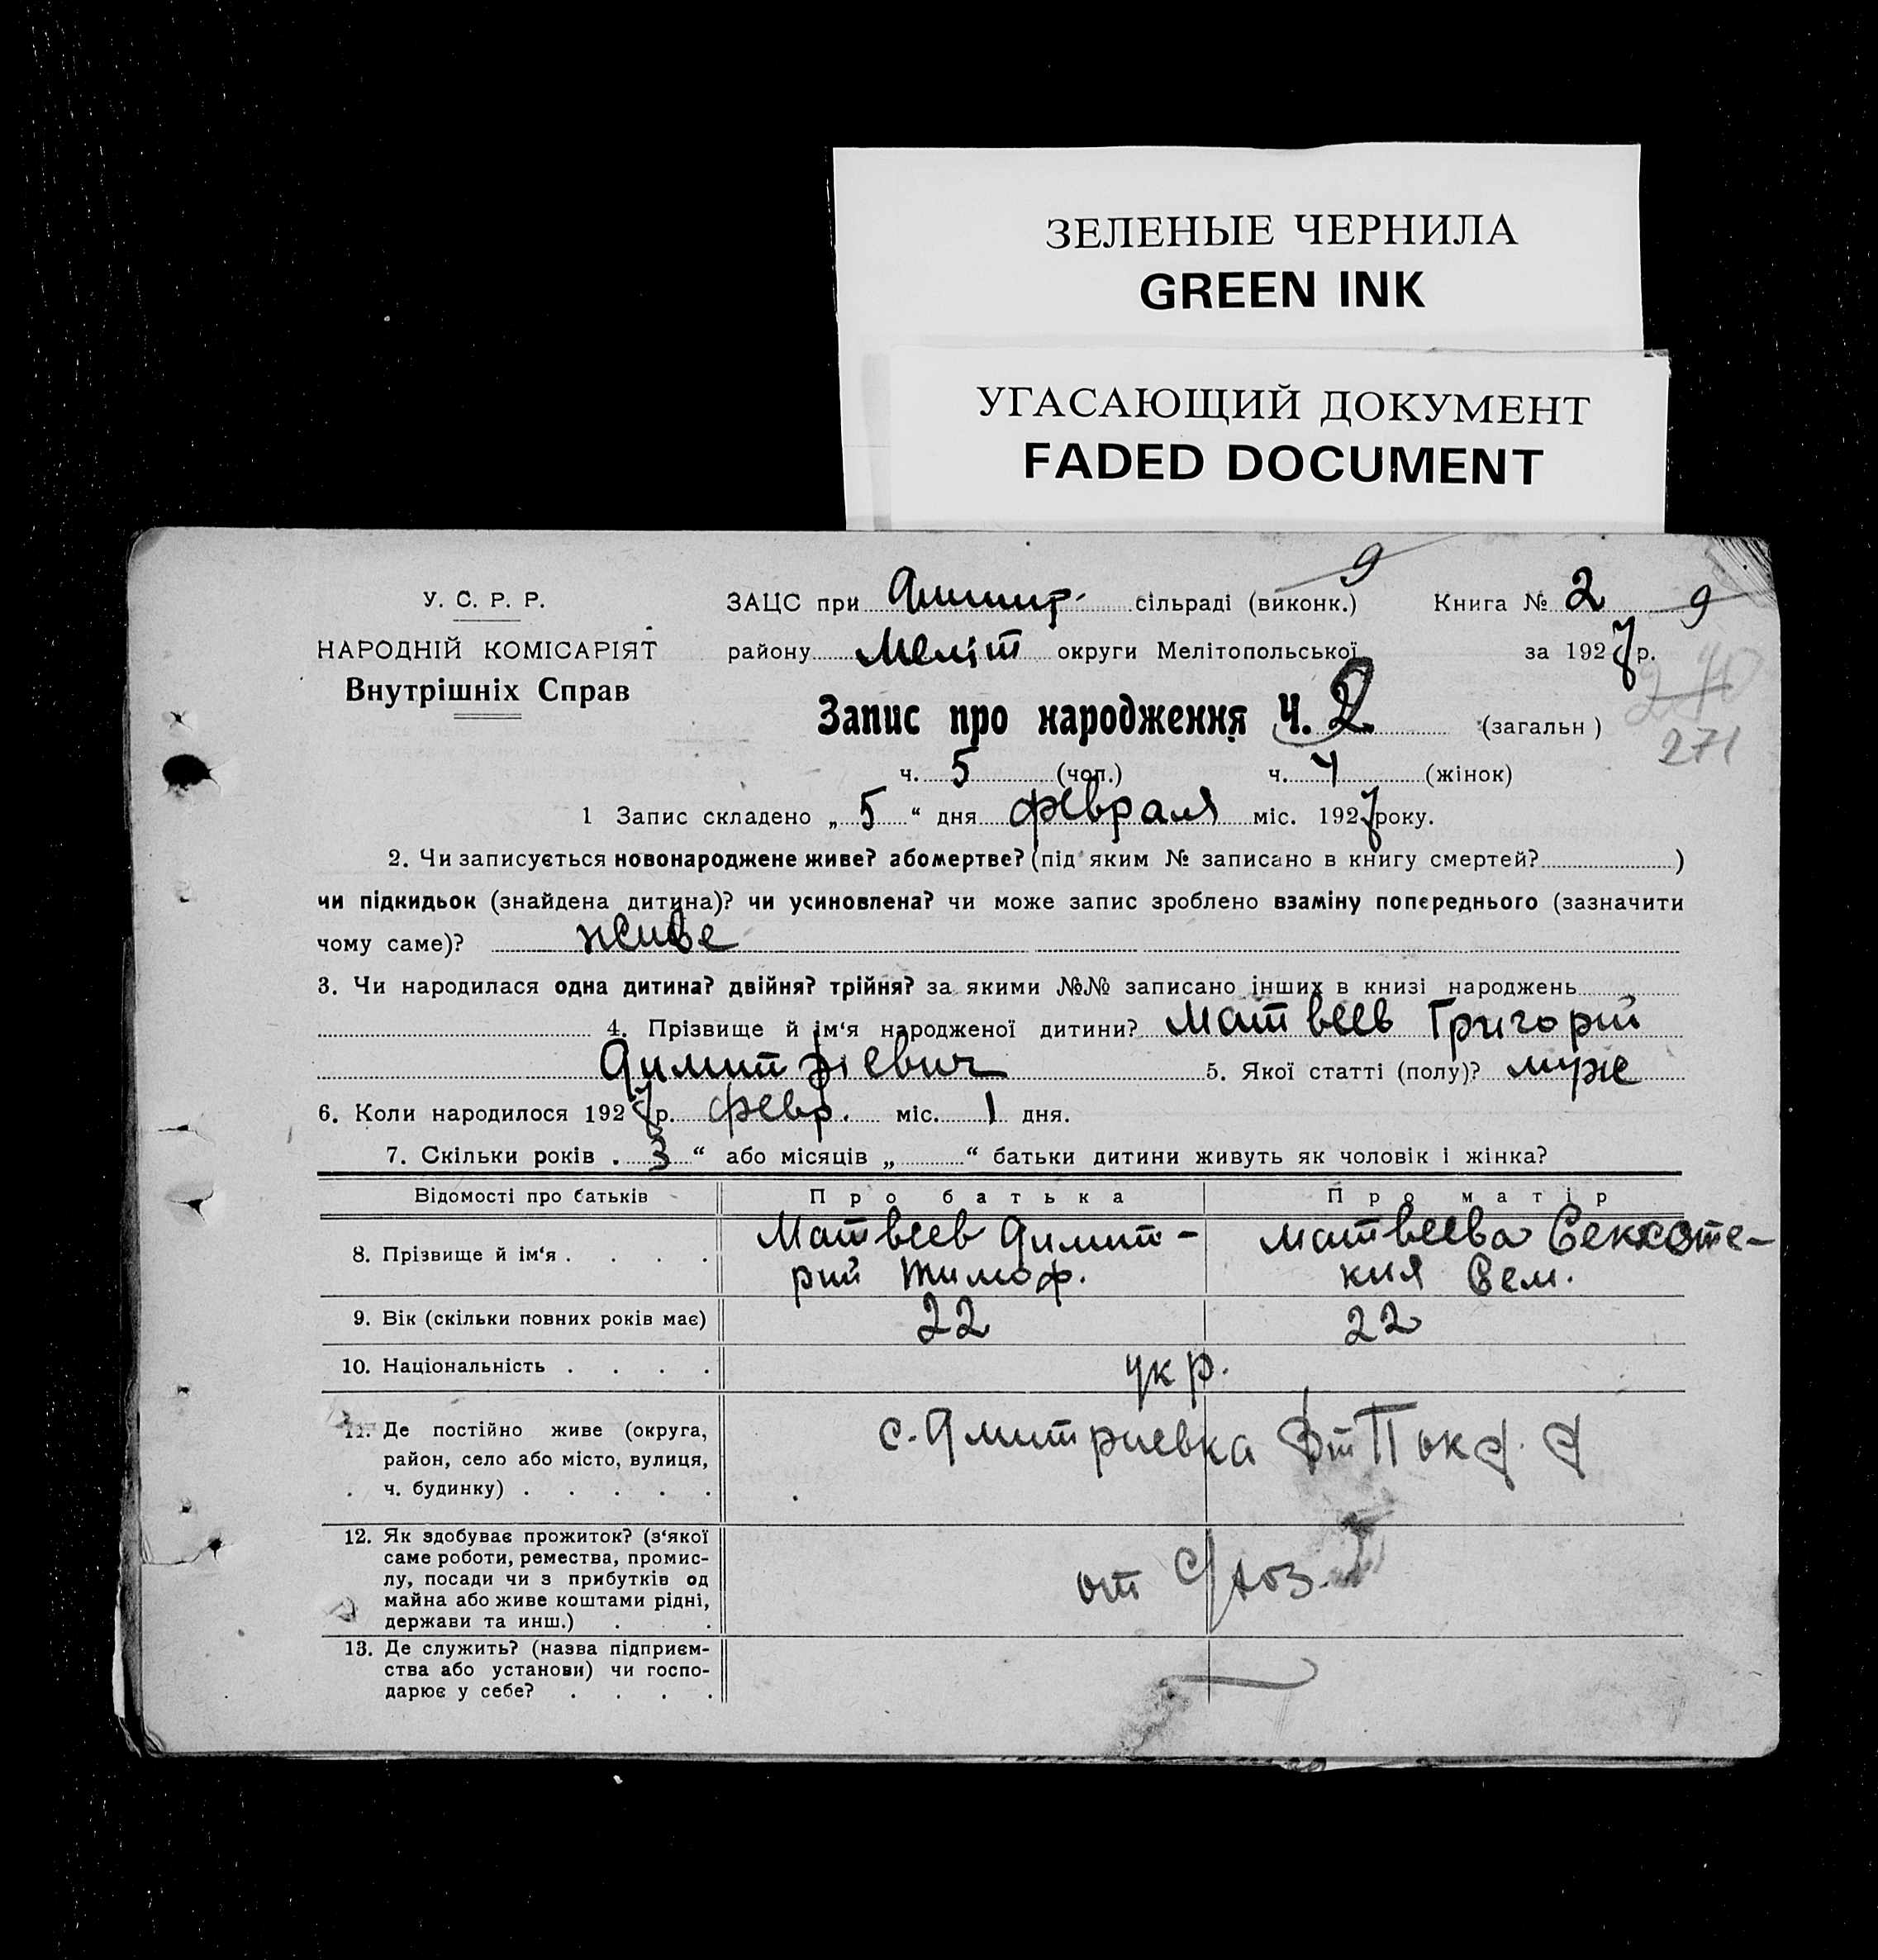 ЗЕЛЕНЫЕ ЧЕРНИЛА
GREEN INK
УГАСАЮЩИЙ ДОКУМЕНТ
FADED DOCUMENT
9
У. С. Р. Р.
ЗАЦС при Дмитр. сільраді (виконк.) Книга № 2 9
НАРОДНІЙ КОМІСАРІЯТ
району Меліт округи Мелітопольської за 1927 р.
Внутрішніх Справ
270
Запис про народження Ч. (загальн )
271
ч. 5 (чол.) ч. 4 (жінок)
1 Запис складено „ 5 “ дня февраля міс. 1927 року.
2. Чи записується новонароджене живе? або мертве? (під яким № записано в книгу смертей? )
чи підкидьок (знайдена дитина)? чи усиновлена? чи може запис зроблено взаміну попереднього (зазначити
чому саме)? живе
3. Чи народилася одна дитина? двійня? трійня? за якими №№ записано інших в книзі народжень
4. Прізвище й ім‘я народженої дитини? Матвеев Григорій
Димитріевич 5. Якої статті (полу)? муже
6. Коли народилося 1927 р. февр. міс. 1 дня.
7. Скільки років „ 3 “ або місяців „ “ батьки дитини живуть як чоловік і жінка?
Відомості про батьків Про батька Про матір
8. Прізвище й ім‘я . . . . Матвеев Димит-
рий Тимоф.
Матвеева
Сем.
9. Вік (скільки повних років має) 22 22
10. Національність . . . . укр.
11. Де постійно живе (округа,
район, село або місто, вулиця,
ч. будинку) . . . . .
с. Дмитриевка
12. Як здобуває прожиток? (з‘якої
саме роботи, ремества, промис-
лу, посади чи з прибутків од
майна або живе коштами рідні,
держави та инш.) . .
от С/хоз.
13. Де служить? (назва підприєм-
ства або установи) чи госпо-
дарює у себе? . . . .